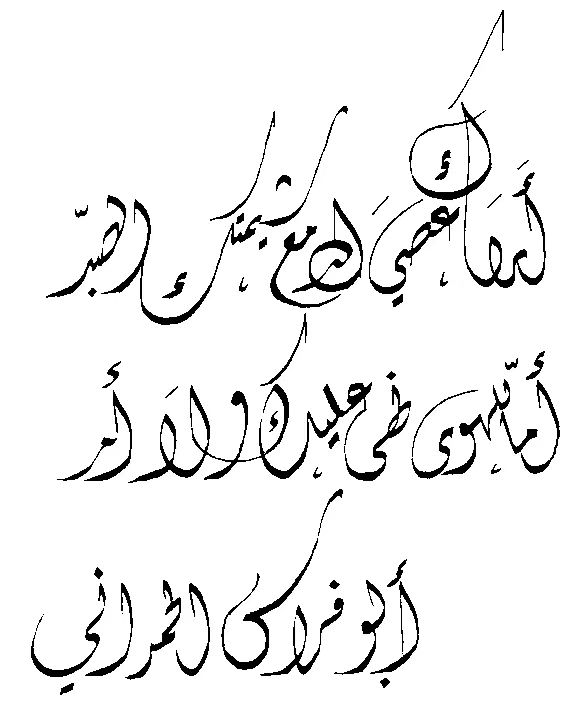 أراك عصي الدمع شيمتك الصبر
أما للهوى نهي عليك ولا أمر
أبو فراس الحمداني